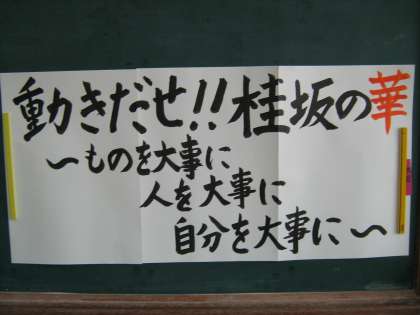 動きだせ!!桂坂の華
～ものを大事に
人を大事に
自分を大事に～